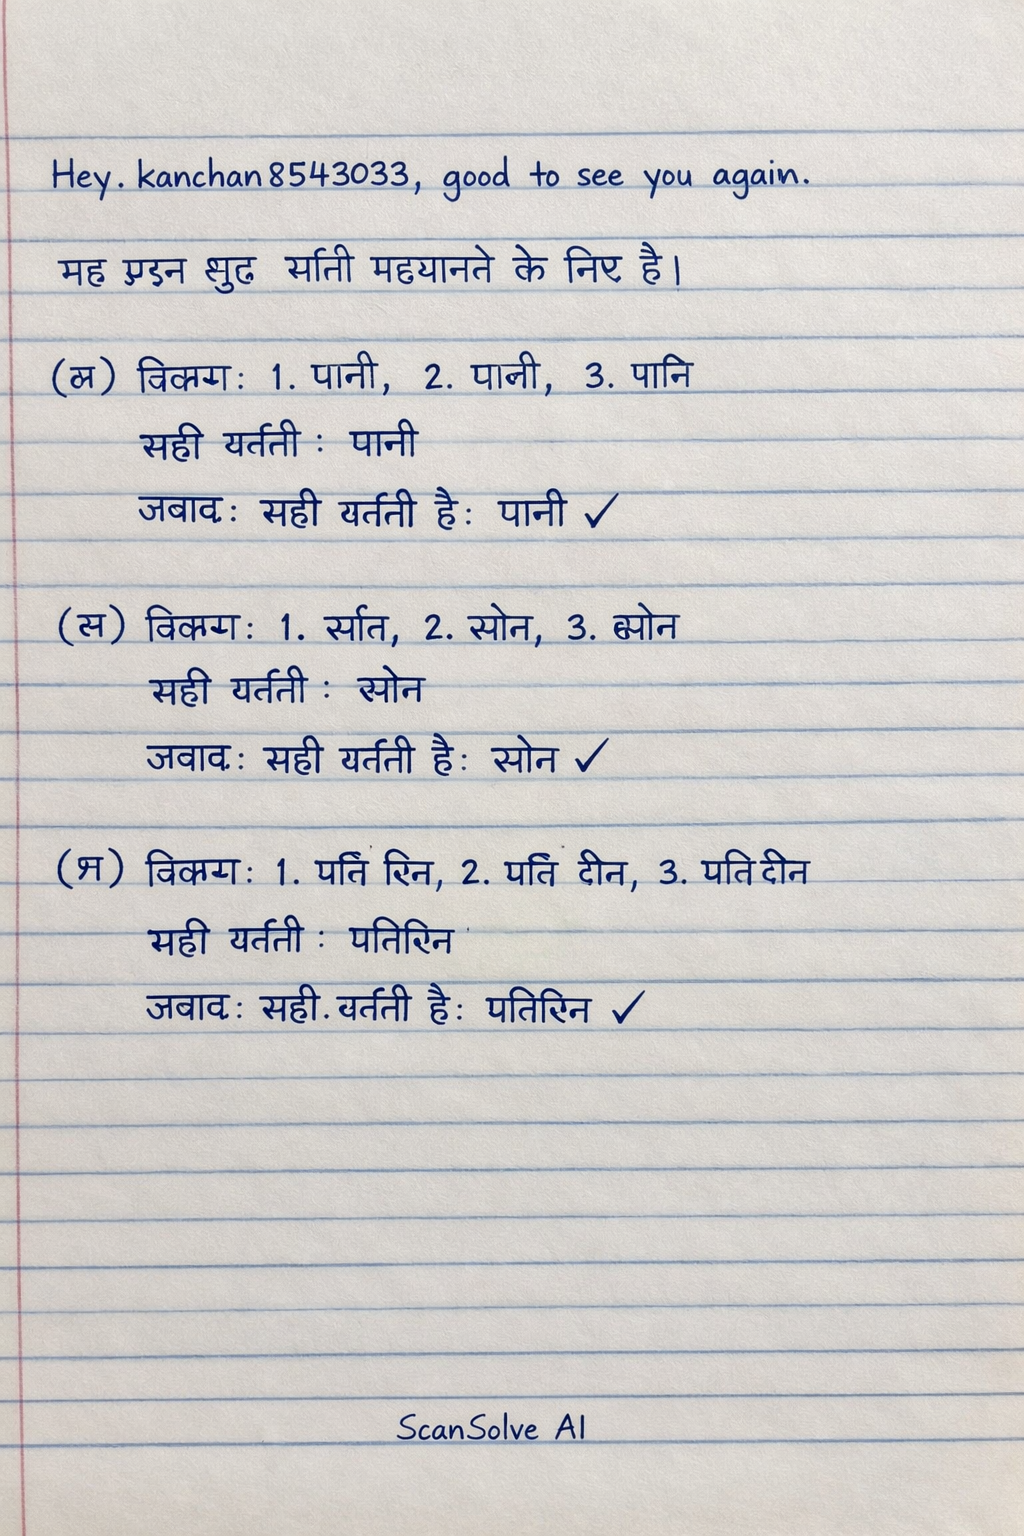 Hey. kanchan8543033, good to see you again.
मह प्रइन शुढ र्साती महयानते के निए है।
(अ) विकग: 1. पानी, 2. पानी, 3. पानि
सही यर्तती : पानी
जवाव: सही यर्तती है: पानी ✓
(स) विकग: 1. र्सात, 2. सोन, 3. स्सोन
सही यर्तती : सोन
जवाव: सही यर्तती है: सोन ✓
विकग: 1. पति रिन, 2. पति दीन, 3. पतिदीन
सही यर्तती : पतिरिन
जवाव: सही. यर्तती है: पतिरिन ✓
ScanSolve AI